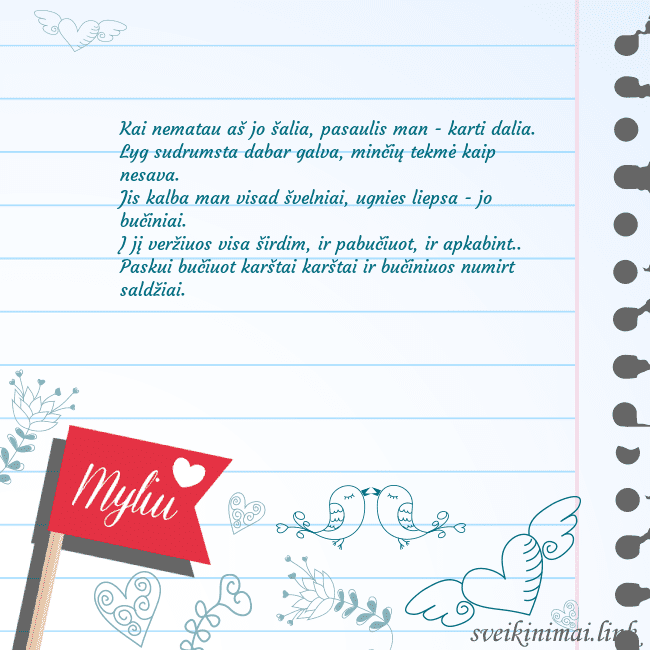 Kai nematau aš jo šalia, pasaulis man - karti dalia.
Lyg sudrumsta dabar galva, minčių tekmė kaip
nesava.
Jis kalba man visad švelniai, ugnies liepsa - jo
bučiniai.
Į jį veržiuos visa širdim, ir pabučiuot, ir apkabint..
Paskui bučiuot karštai karštai ir bučiniuos numirt
saldžiai.
Myliu
sveikinimai.link